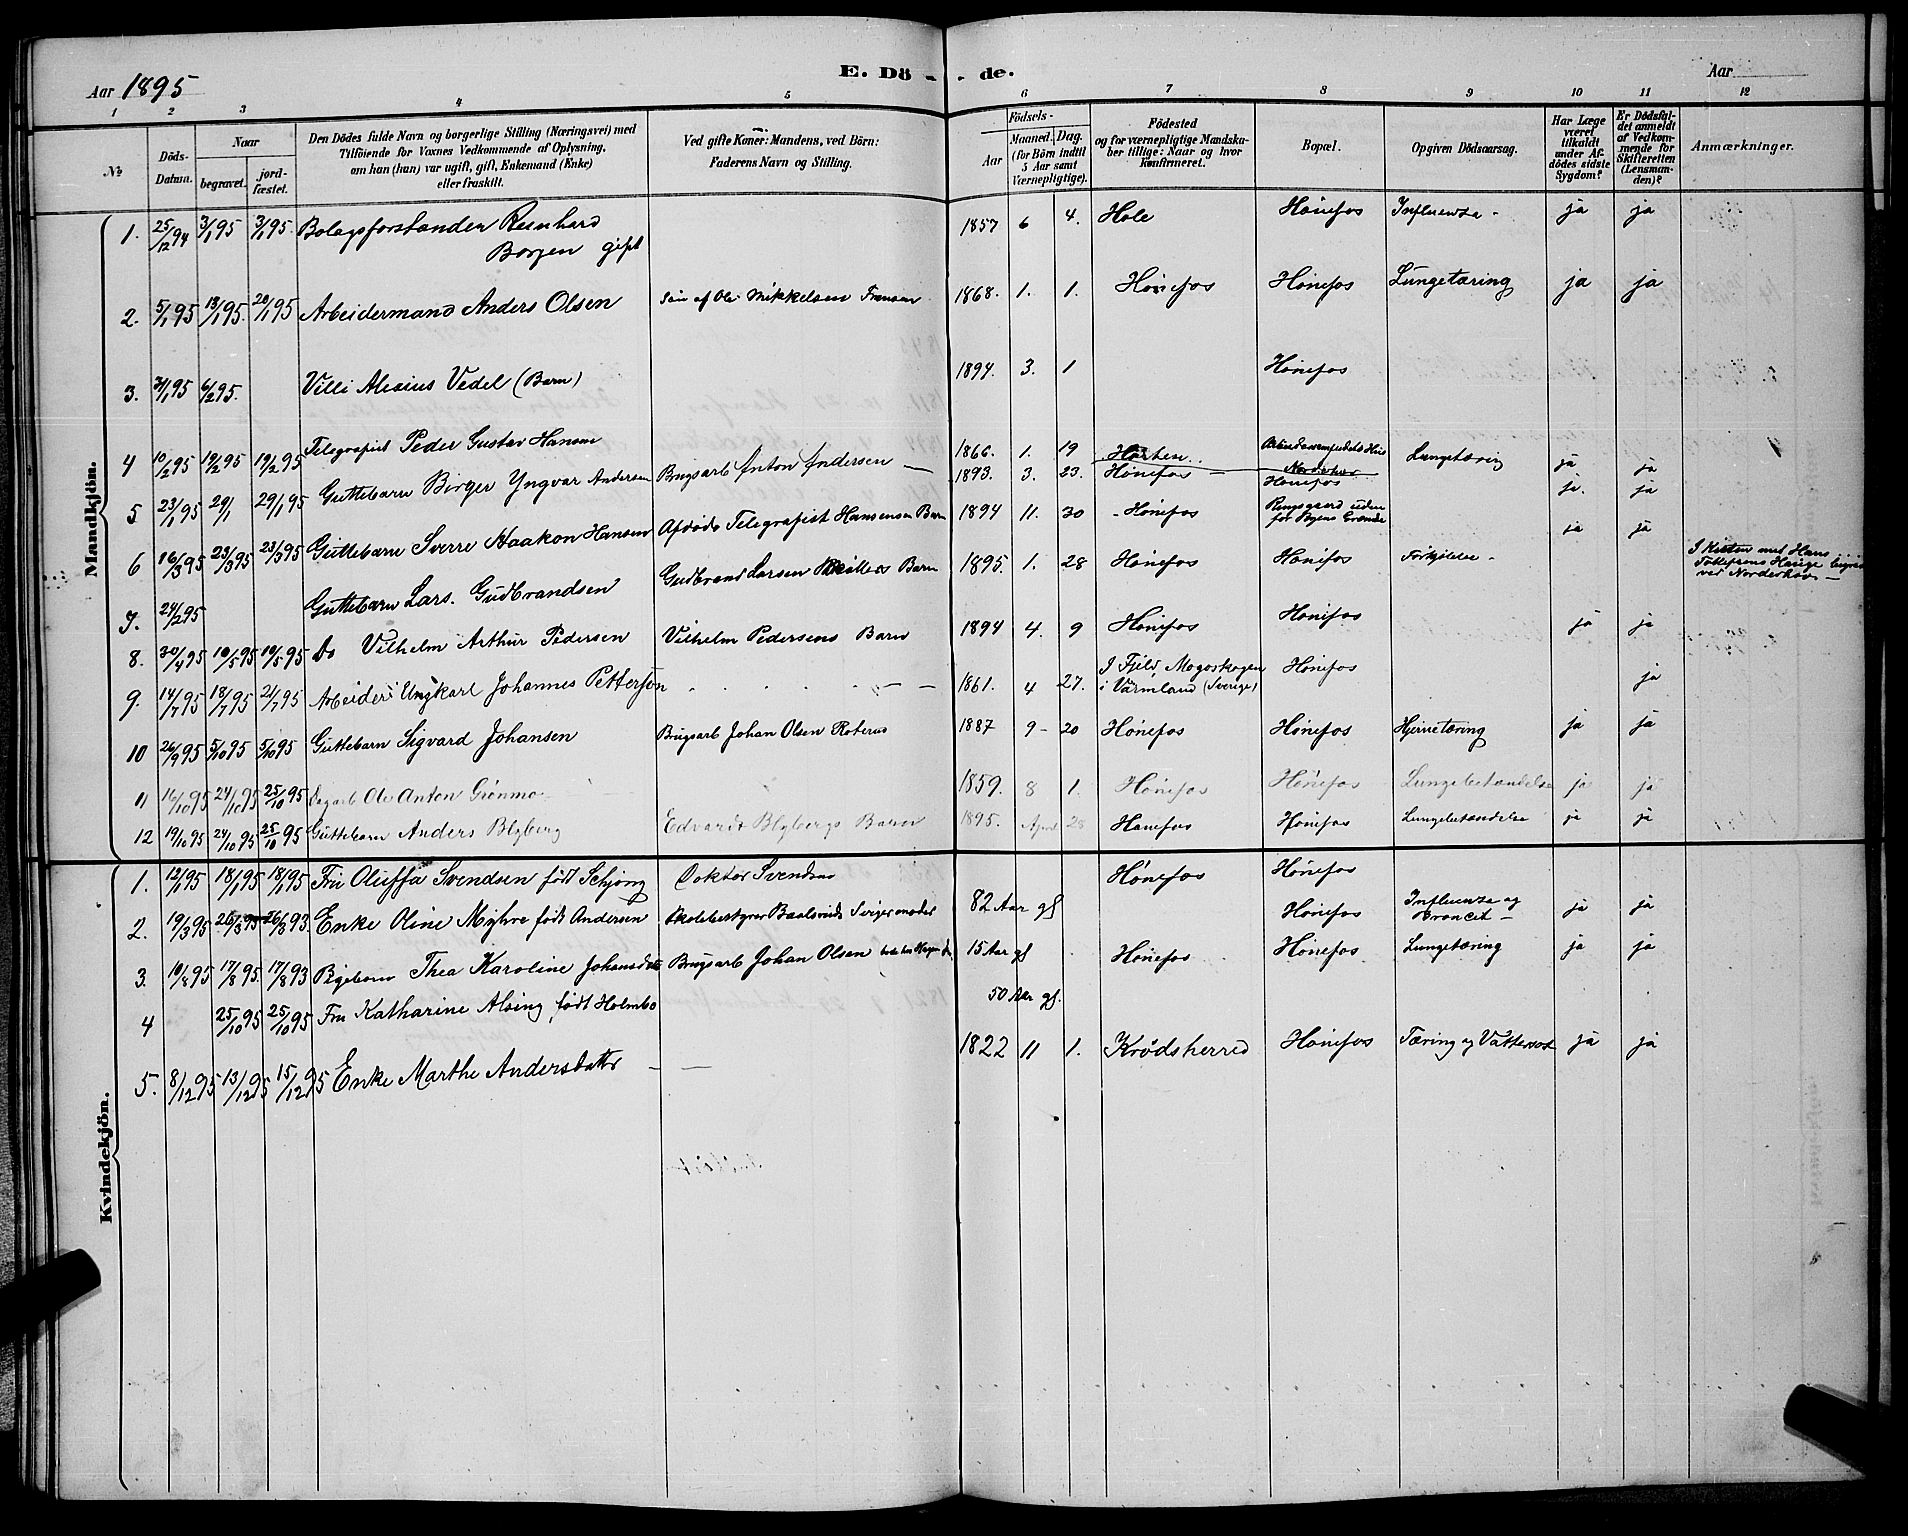 Aar 1895 E. Dö de. Aar
1 2 3 4 5 6 7 8 9 10 11 12
№ Döds-Datum. Naar begravet. jordfæstet. Den Dödes fulde Navn og borgerlige Stilling (Næringsvei) med Tilföiende for Voxnes Vedkommende af Oplysning, om han (hun) var ugift, gift, Enkemand (Enke) eller fraskilt. Ved gifte Koner: Mandens, ved Börn: Faderens Navn og Stilling. Aar Födsels- Maaned. Dag. (for Börn indtil 5 Aar samt Værnepligtige). Födested og for værnepligtige Mandskaber tillige: Naar og hvor Konfirmeret. Bopæl. Opgiven Dödsaarsag. Har Læge været tilkaldt under Afdödes sidste Sygdom? Er Dödsfaldet anmeldt af Vedkommende for Skifteretten (Lensmanden)? Anmærkninger.
Mandkjön.
1. 25/12 94 3/1 95 3/1 95. Bolagsforstander Reinhard 1857 6 4. Hole Hønefos Influenza - ja ja
Borgen gift
2. 5/1 95 13/1 95. 20/1 95 Arbeidermand Anders Olsen Søn af Ole Mikkelsen 1868. 1. 1. Hønefos Hønefos Lungetæring ja ja
3. 31/1 95 6/2 95. Villi Alexius Vedel (Barn) 1894. 3. 1 Hønefos
4 10/2 95 19/2 95 19/2 95 Telegrafist Peder Gustav Hansen 1866. 1. 19 Horten Norderhov Lungetæring ja ja
5 23/1 95 29/1 29/1 95 Guttebarn Birger Yngvar Andersen Brugsarb Anton Andersen — 1893. 3. 23. Hønefos Hønefos ja. ja
6 16/3 95 23/3 95 23/3 95 Guttebarn Sverre Haakon Hansen Afdøde Telegrafist Hansens Barn 1894 11. 30 - Hønefos Ringsgaard uden for Byens Grændse ja ja
7. 24/2 95 Guttebarn Lars. Gudbrandsen Gudbrand Larsen Barn 1895. 1. 28 Hønefos Hønefos Forkjølelse - I Kisten med Hans Hauge ved Norderhov —
8. 30/4 95 10/5 95 19/5 95 Do Vilhelm Arthur Pedersen Vilhelm Pedersens Barn 1894 4. 9 Hønefos Hønefos ja ja
9. 14/7 95 18/7 95 21/7 95 Arbeider Ungkarl Johannes Pettersen — — 1861. 4 27. I Fjeld, Mogoskogen i Värmland (Sverige) Hønefos ja
10 26/9 95 5/10 95 5/10 95 Guttebarn Sigvard Johansen Brugsarb Johan Olsen 1887 9 - 20 Hønefos Hønefos Hjernetæring ja ja
11 16/10 95 24/10 95 25/10 95 Ole Anton Grønmo 1859. 8 1. Hønefos Hønefos Lungebetændelse ja ja
12 19/10 95 24/10 95 25/10 95 Guttebarn Anders Blyberg Edvards Blybergs Barn 1895. April 28 Hønefos Hønefos Lungebetændelse ja ja
Kvindekjön.
1. 12/1 95 18/1 95 18/1 95 Fru Oluffa Svendsen født Schjong Doktor Svendsen Hønefos Hønefos
2. 19/3 95 26/3 95 26/3 93 Enke Oline Myhre født Andersen Skolebestyrer Svigermoder 82 Aar gl Hønefos Influenza og ja ja
3. 10/8 95 17/8 95. 17/8 93 Pigebarn Thea Karoline Johansdtr Brugsarb Johan Olsen 15 Aar gl Hønefos Hønefos. Lungetæring ja ja
4 25/10 95 25/10 95 Fru Katharine Alsing, født Holmbo 50 Aar gl.
5. 8/12 95 13/12 95 15/12 95 Enke Marthe Andersdatter — — 1822 11 1. Krødsherred Hønefos Tæring og Vattersot ja ja